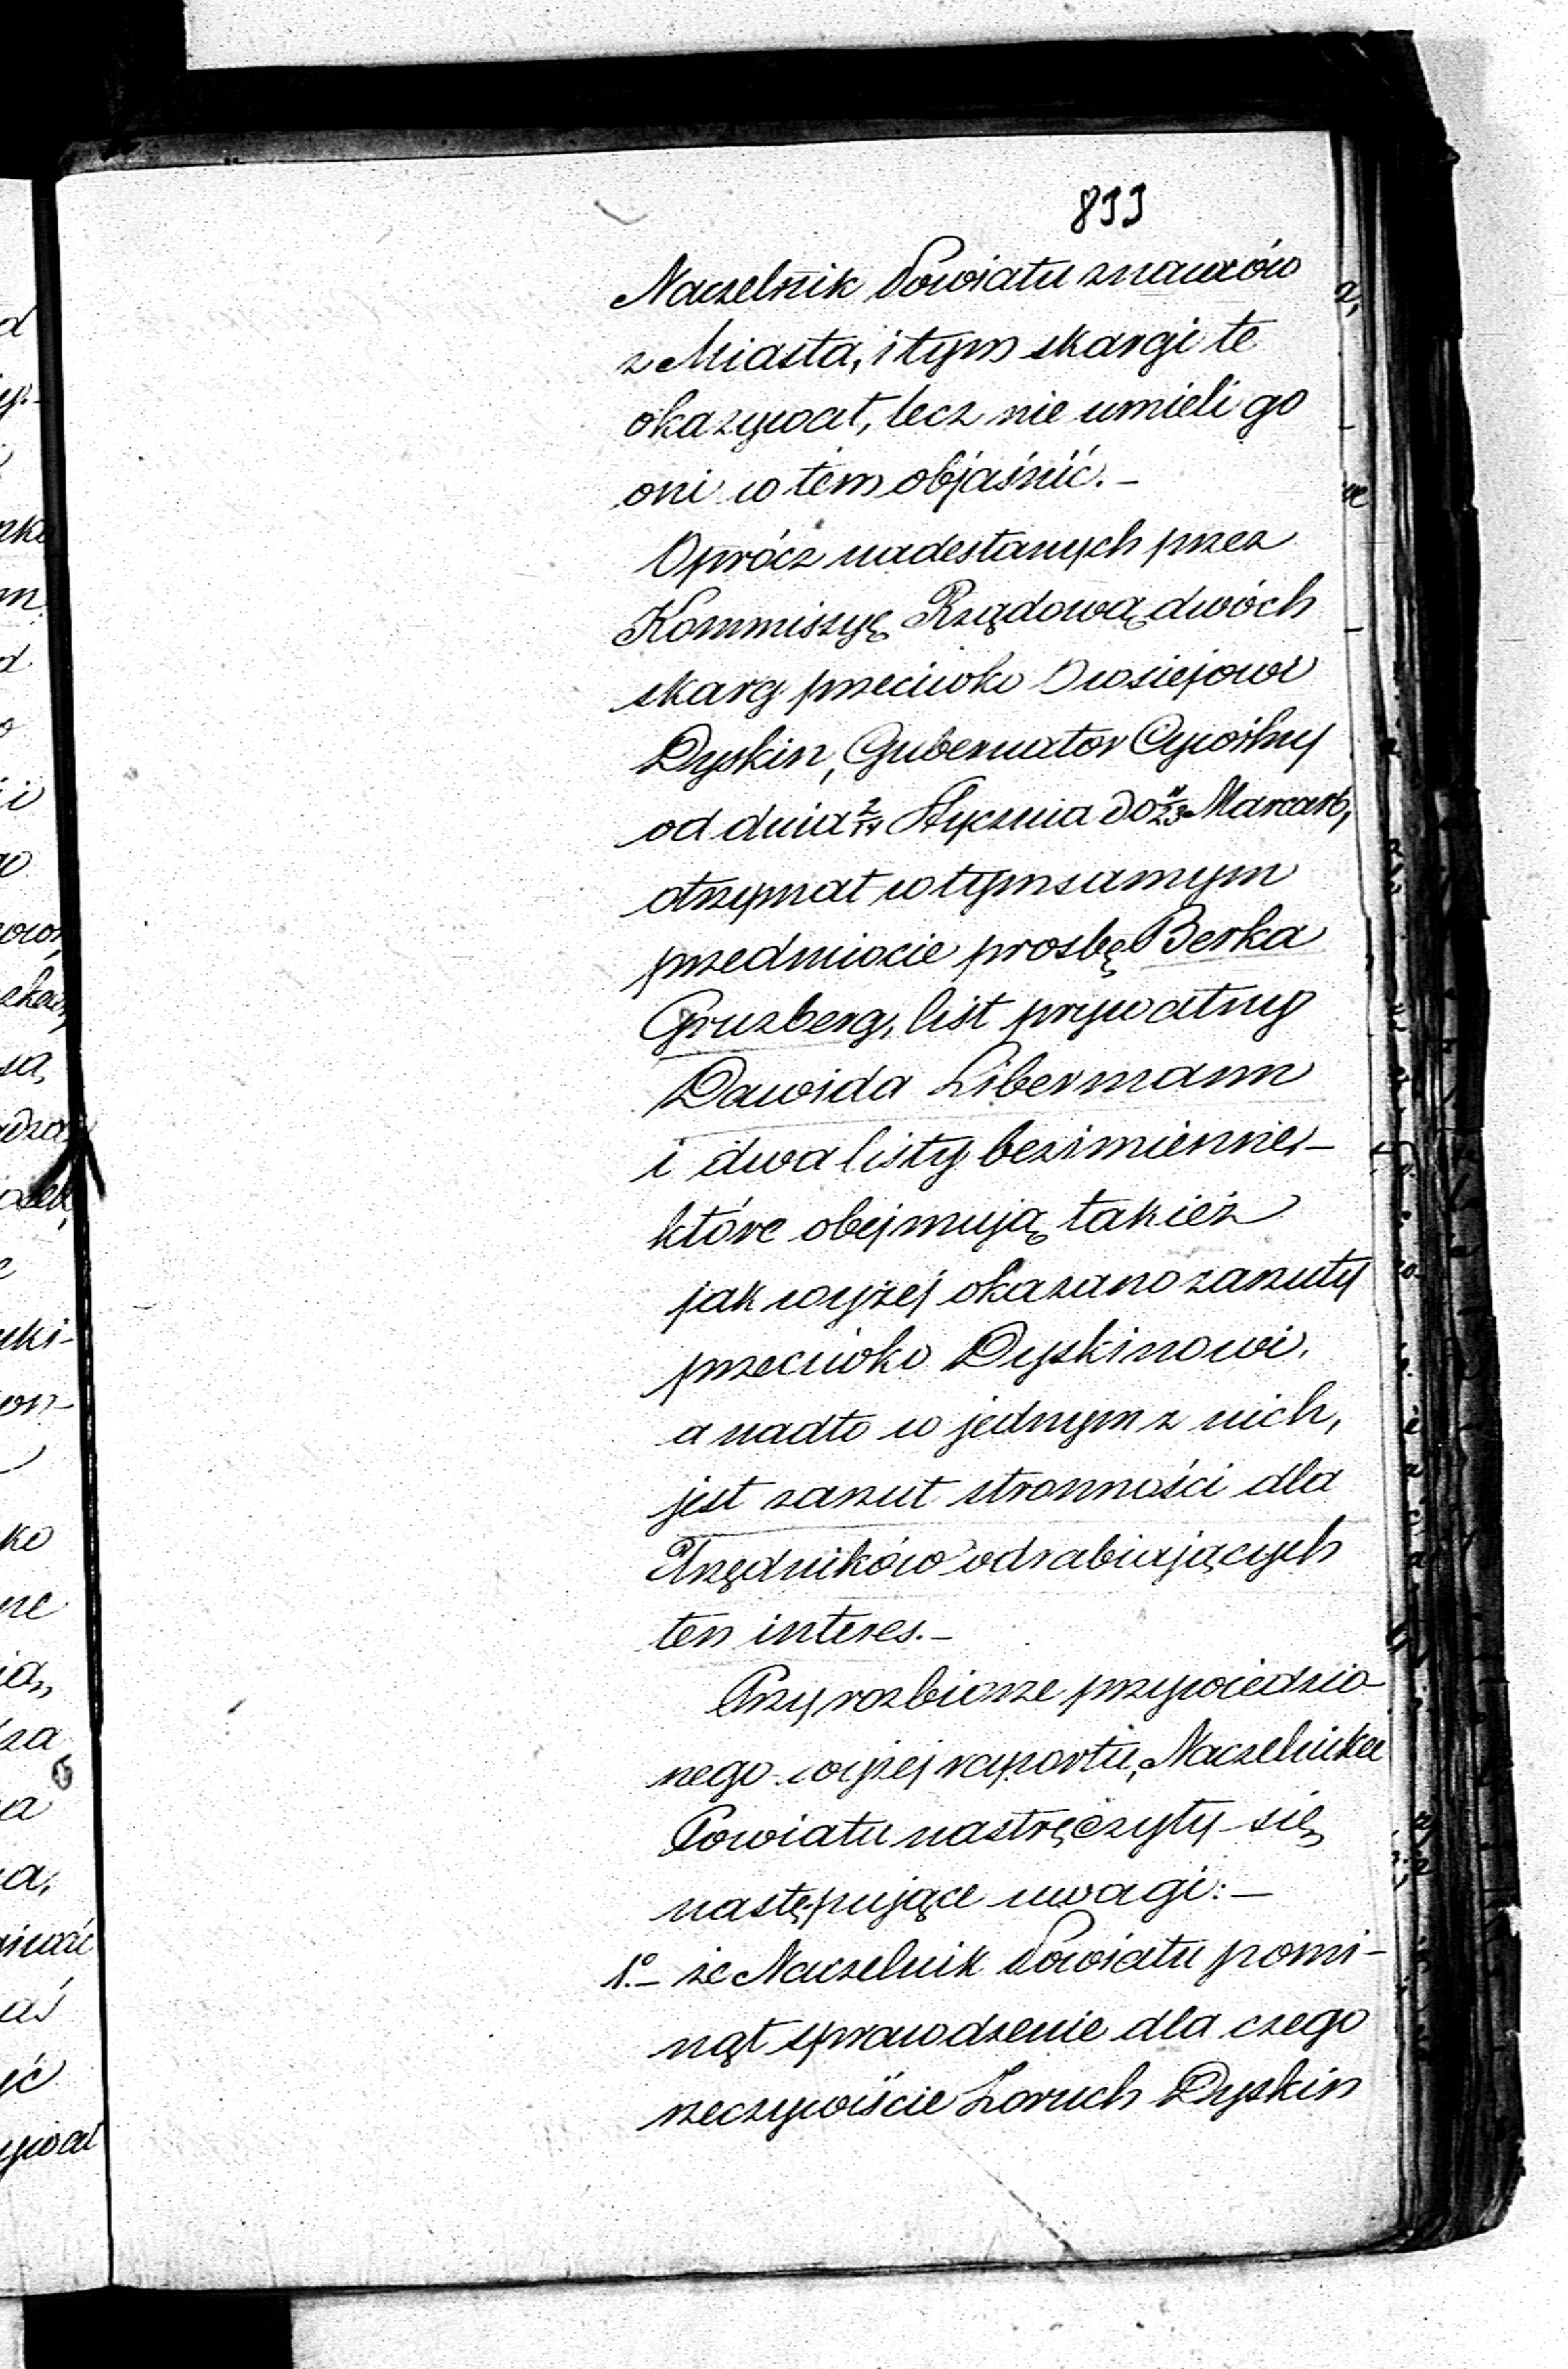 833
Naczelnik Powiatu znawców
z Miasta, i tym skargi te
okazywał, lecz nie umieli go
oni w tem objaśnić. –
Oprócz nadesłanych przez
Kommissyę Rządową dwóch
skarg przeciwko Owsiejowi
Dyskin, Gubernator Cywilny
od dnia 2/14 Stycznia do 11/23 Marca rb,
otrzymał w tym samym
przedmiocie prosbę Berka
Gruzberg, list prywatny
Dawida Libermann
i dwa listy bezimienne, –
które obejmują takież
jak wyżej okazano zarzuty
przeciwko Dyskinowi,
a nadto w jednym z nich,
jest zarzut stronności dla
Urzędników odrabiających
ten interes. –
Przy rozbiorze przywiedzio-
nego wyżej raportu, Naczelnika
Powiatu nastręczyły się
następujące uwagi: –
1.° – że Naczelnik Powiatu pomi-
nął sprawdzenie dla czego
rzeczywiście Zoruch Dyskin